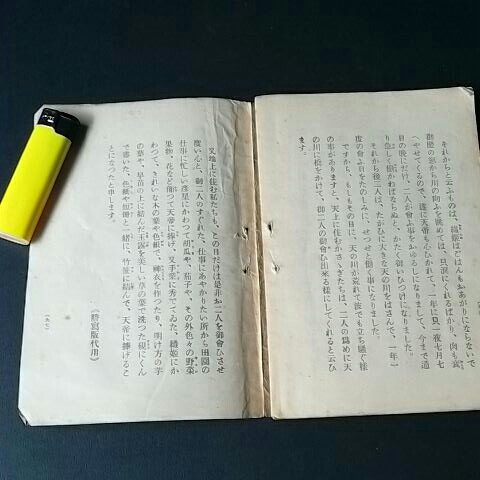 それからと云ふものは、織姫はごはんもおあがりにならないで
御殿の窓から川の向ふを眺めては、只涙にくれるばかり、肉も衰
へやせてくるので、遂に天帝も心ひかれて、一年に只一夜七月七
日の晩にだけ、二人が會ふ事をおゆるしになりまして、今まで通
り急しく働かねばならぬと、かたく御いひつけになりました。
それから後二人は、たがひに大きな天の川をはさんで、一年一
度の會ふ日をたのしみに、せつせと働く事になりました。
ですから、もしもその日に、天の川が荒れて彼でも立ち騷ぐ樣
の事がありますと、天上に住むかさゝぎたちは、二人の爲めに天
の川に橋をかけて、御二人の御會ひ出來る樣にしてくれると云ひ
ます。
又地上に住む私たちも、この日だけは是非お二人を御會ひさせ
度い心と、御二人のすぐれた、仕事にあやかりたい所から田園の
仕事に忙しい彦星にかわつて胡瓜や、茄子や、その外色々の野菜
果物、花などを飾つて天帝に捧げ、又手業に秀でてゐた、織姫にか
わつて、きれいな木の葉や色紙で、神衣を作つたり、明け方の芋
の葉や、早苗の上に結んだ玉露を美しい草の葉で洗つた硯にくん
で書いた、色紙や短册と一緒に、竹笹に結んで、天帝に捧げるこ
とになつたと申します。
(謄寫版代用)